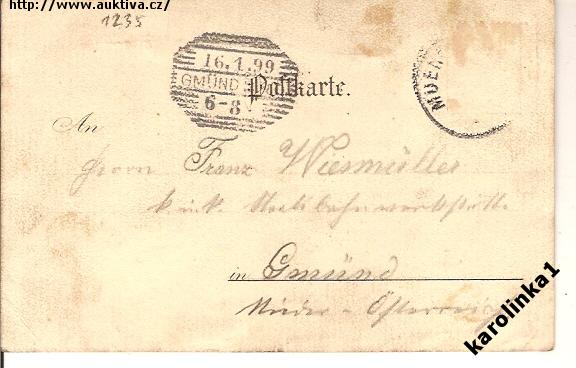 http://www.auktiva.cz/
1235
16.1.99
GMÜND
6-8
Postkarte.
MUEN
An
Herrn Franz Wiesmüller
k. u. k. Staatsbahnwerkstätte
in Gmünd
Nieder-Österreich
karolinka1